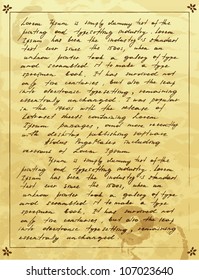 Lorem Ipsum is simply dummy text of the
printing and typesetting industry. Lorem
Ipsum has been the industry's standard
text ever since the 1500s, when an
unknown printer took a galley of type
and scrambled it to make a type
specimen book. It has survived not
only five centuries, but also the leap
into electronic typesetting, remaining
essentially unchanged. It was popular
in the 1960s with the release of
Letraset sheets containing Lorem
Ipsum passages, and more recently
with desktop publishing software
Aldus PageMaker including
versions of Lorem Ipsum.
Ipsum is simply dummy text of the
printing and typesetting industry. Lorem
Ipsum has been the industry's standard
text ever since the 1500s, when an
unknown printer took a galley of type
and scrambled it to make a type
specimen book. It has survived not
only five centuries, but also the leap
into electronic typesetting, remaining
essentially unchanged.
shutterstock
107023640